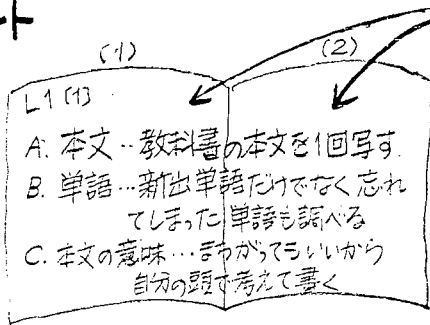 ト
(1)
(2)
L1 (1)
A. 本文‥教科書の本文を1回写す.
B. 単語…新出単語だけでなく忘れ
てしまった単語も調べる
C. 本文の意味…まちがってもいいから
自分の頭で考えて書く